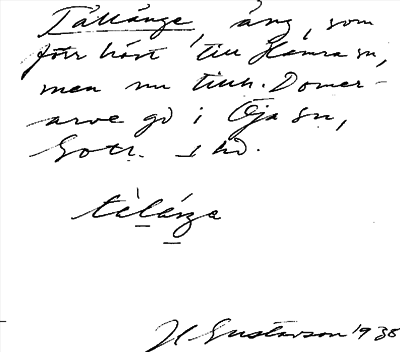 Tällänge, äng, som
förr hört till Hamra sn,
men nu tillh. Domer-
arve gd i Öja sn,
Gotl. hd.
H Gustavson 1938